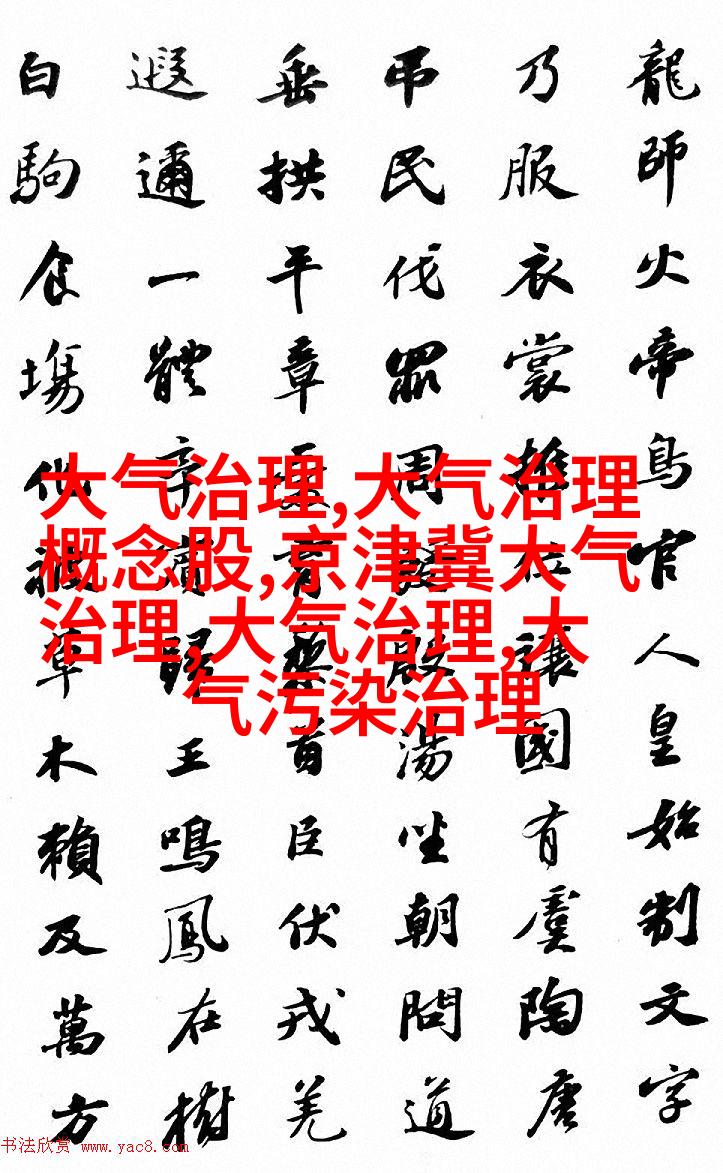 龍師火帝鳥官人皇始制文字
乃服衣裳推位讓國有虞陶唐
吊民伐罪周發殷湯坐朝問道
垂拱平章愛育黎首臣伏戎羌
遐邇一體率賓歸王鳴鳳在樹
白駒食場化被草木賴及萬方
大气治理,大气治理
概念股,京津冀大气
治理,大气治理,大
气污染治理
书法欣赏 www.yac8.com